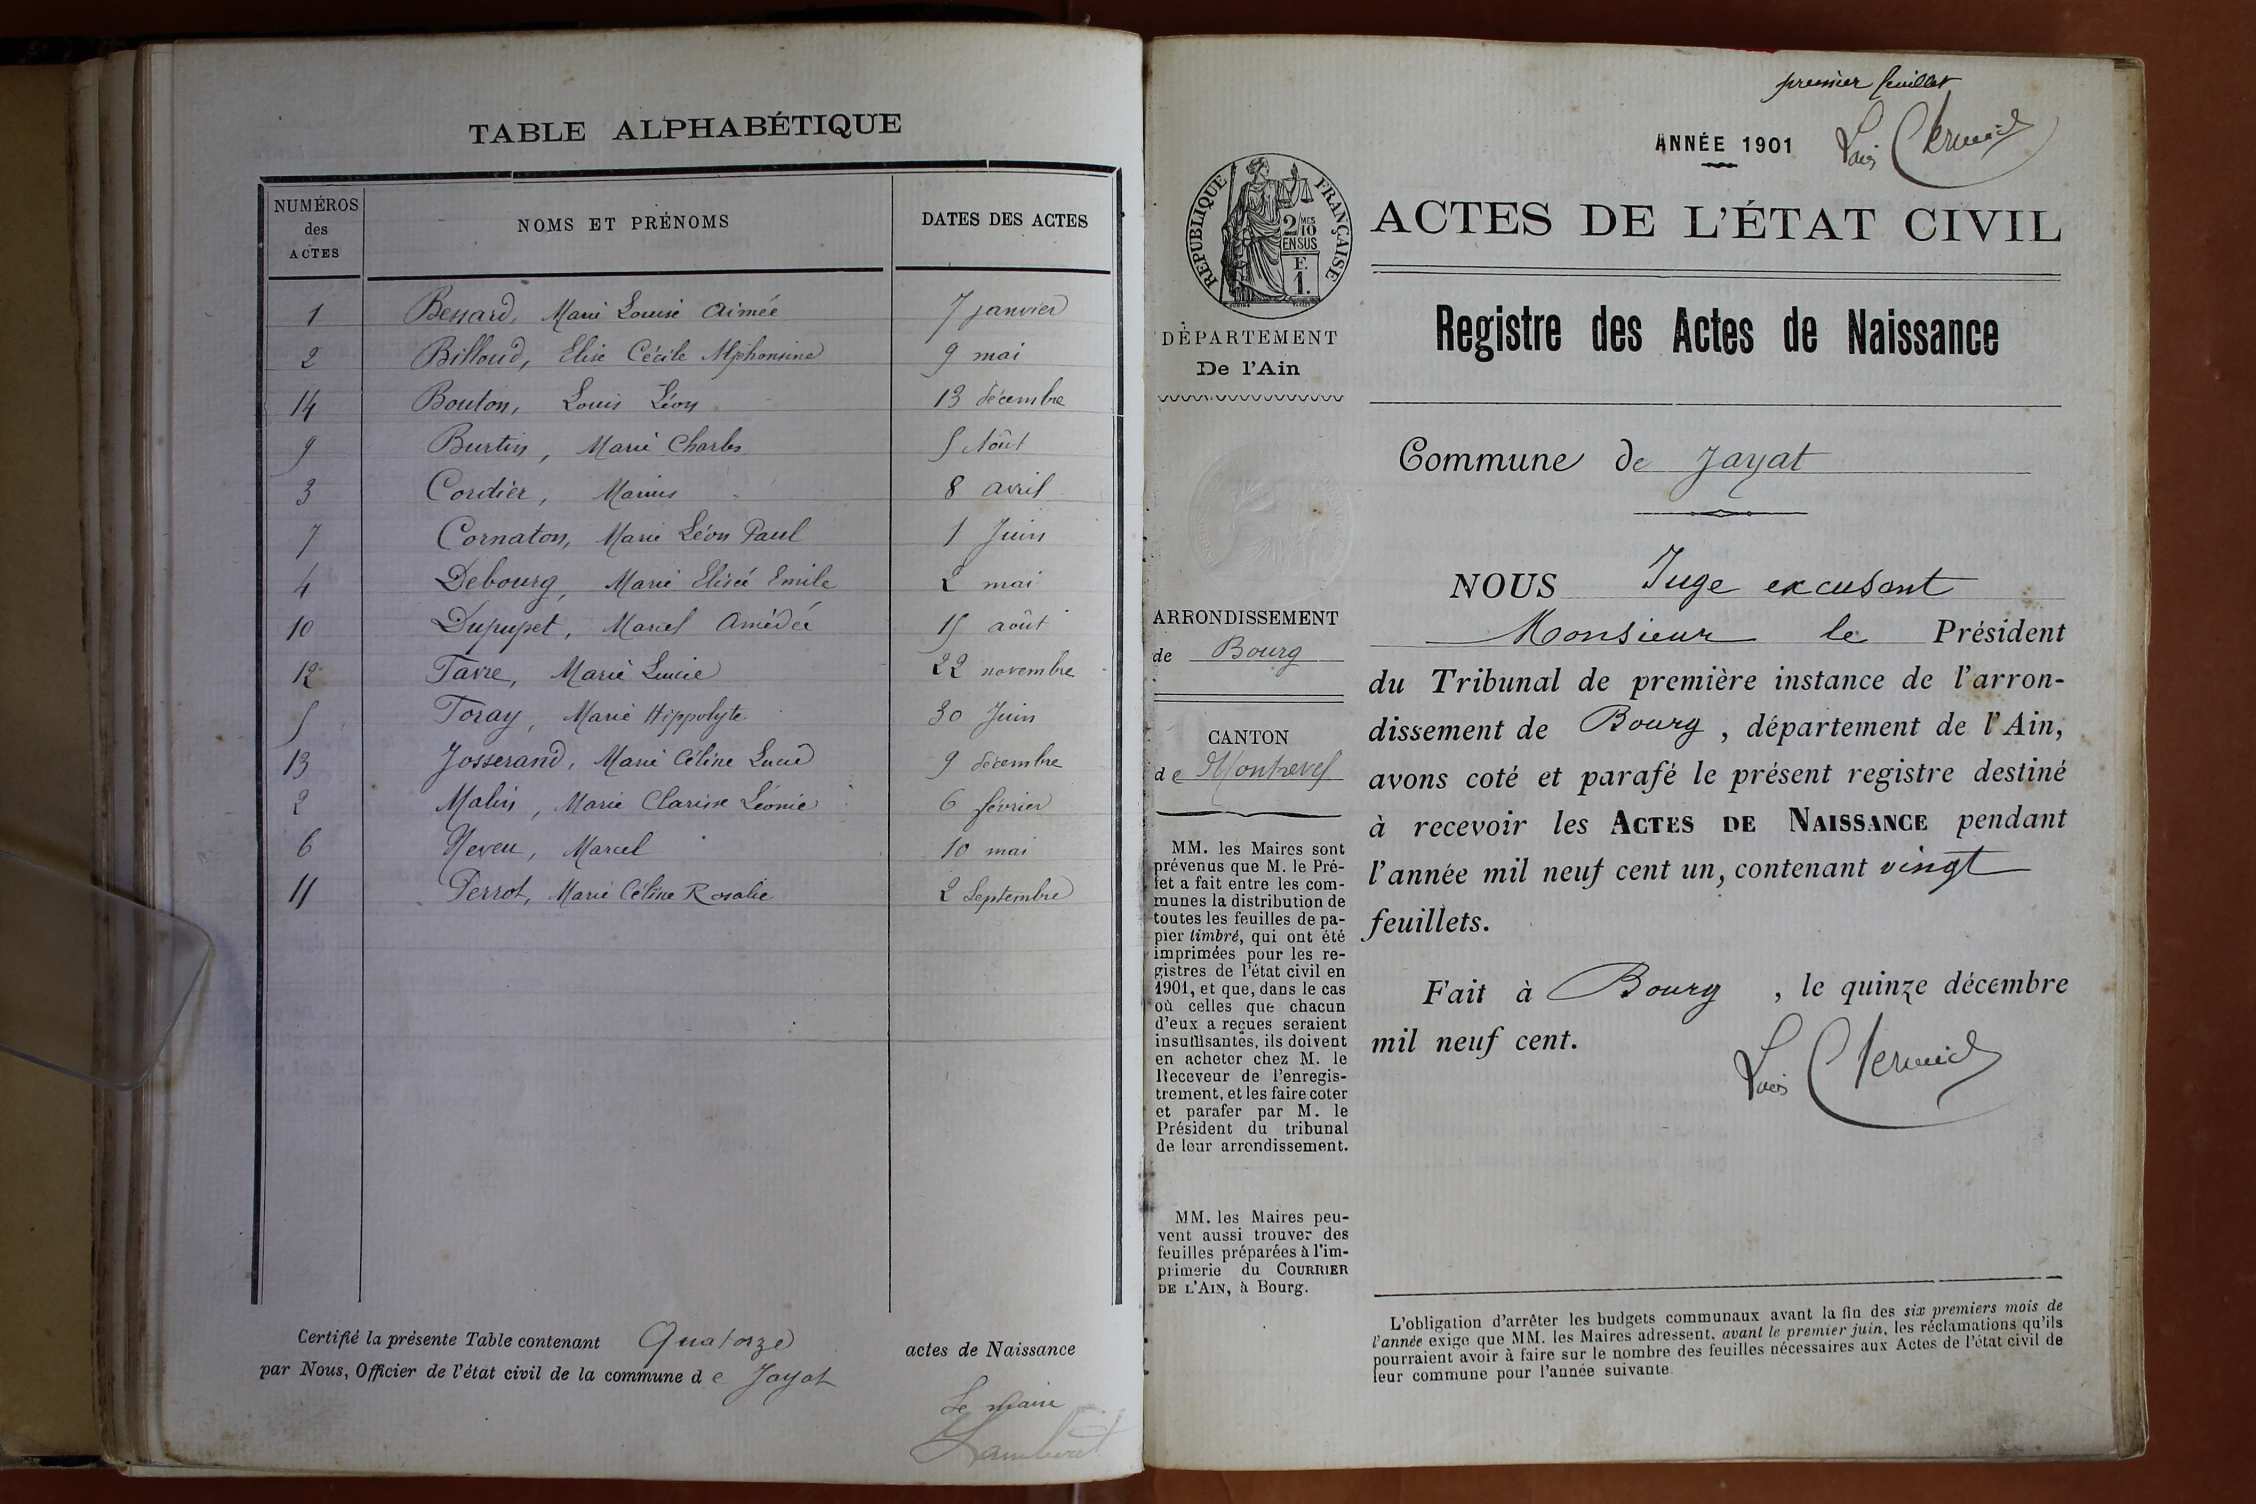 TABLE ALPHABÉTIQUE
NUMÉROS des ACTES NOMS ET PRÉNOMS DATES DES ACTES
1 Bessard, Marie Louise Aimée 7 janvier
2 Billoud, Elise Cécile Alphonsine 9 mai
14 Bouton, Louis Léon 13 décembre
9 Burtin, Marie Charles 5 Août
3 Cordier, Marius 8 avril
7 Cornaton, Marie Léon Paul 1 Juin
4 Debourg, Marie Elisée Emile 2 mai
10 Dupupet, Marcel Amédée 15 août
12 Favre, Marie Lucie 22 novembre
5 Foray, Marie Hippolyte 30 Juin
13 Josserand, Marie Céline Lucie 9 décembre
2 Malin, Marie Clarisse Léonie 6 février
6 Neveu, Marcel 10 mai
11 Perrot, Marie Céline Rosalie 2 Septembre
Certifié la présente Table contenant Quatorze actes de Naissance
par Nous, Officier de l'état civil de la commune de Jayat
Le maire
premier feuillet
ANNÉE 1901
RÉPUBLIQUE FRANÇAISE
2/10 MES
EN SUS
F.
1.
ACTES DE L'ÉTAT CIVIL
Registre des Actes de Naissance
DÉPARTEMENT
De l'Ain
Commune de Jayat
ARRONDISSEMENT
de Bourg
CANTON
de Montrevel
MM. les Maires sont
prévenus que M. le Pré-
fet a fait entre les com-
munes la distribution de
toutes les feuilles de pa-
pier timbré, qui ont été
imprimées pour les re-
gistres de l'état civil en
1901, et que, dans le cas
où celles que chacun
d'eux a reçues seraient
insuffisantes, ils doivent
en acheter chez M. le
Receveur de l'enregis-
trement, et les faire coter
et parafer par M. le
Président du tribunal
de leur arrondissement.
MM. les Maires peu-
vent aussi trouver des
feuilles préparées à l'im-
primerie du COURRIER
DE L'AIN, à Bourg.
NOUS Juge excusant
Monsieur le Président
du Tribunal de première instance de l'arron-
dissement de Bourg, département de l'Ain,
avons coté et parafé le présent registre destiné
à recevoir les ACTES DE NAISSANCE pendant
l'année mil neuf cent un, contenant vingt
feuillets.
Fait à Bourg, le quinze décembre
mil neuf cent.
L'obligation d'arrêter les budgets communaux avant la fin des six premiers mois de
l'année exige que MM. les Maires adressent, avant le premier juin, les réclamations qu'ils
pourraient avoir à faire sur le nombre des feuilles nécessaires aux Actes de l'état civil de
leur commune pour l'année suivante.